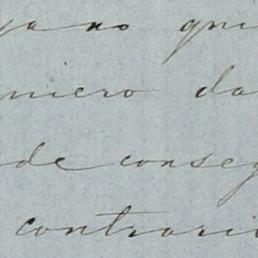 ya no qui
niero da
de conseg
contrari